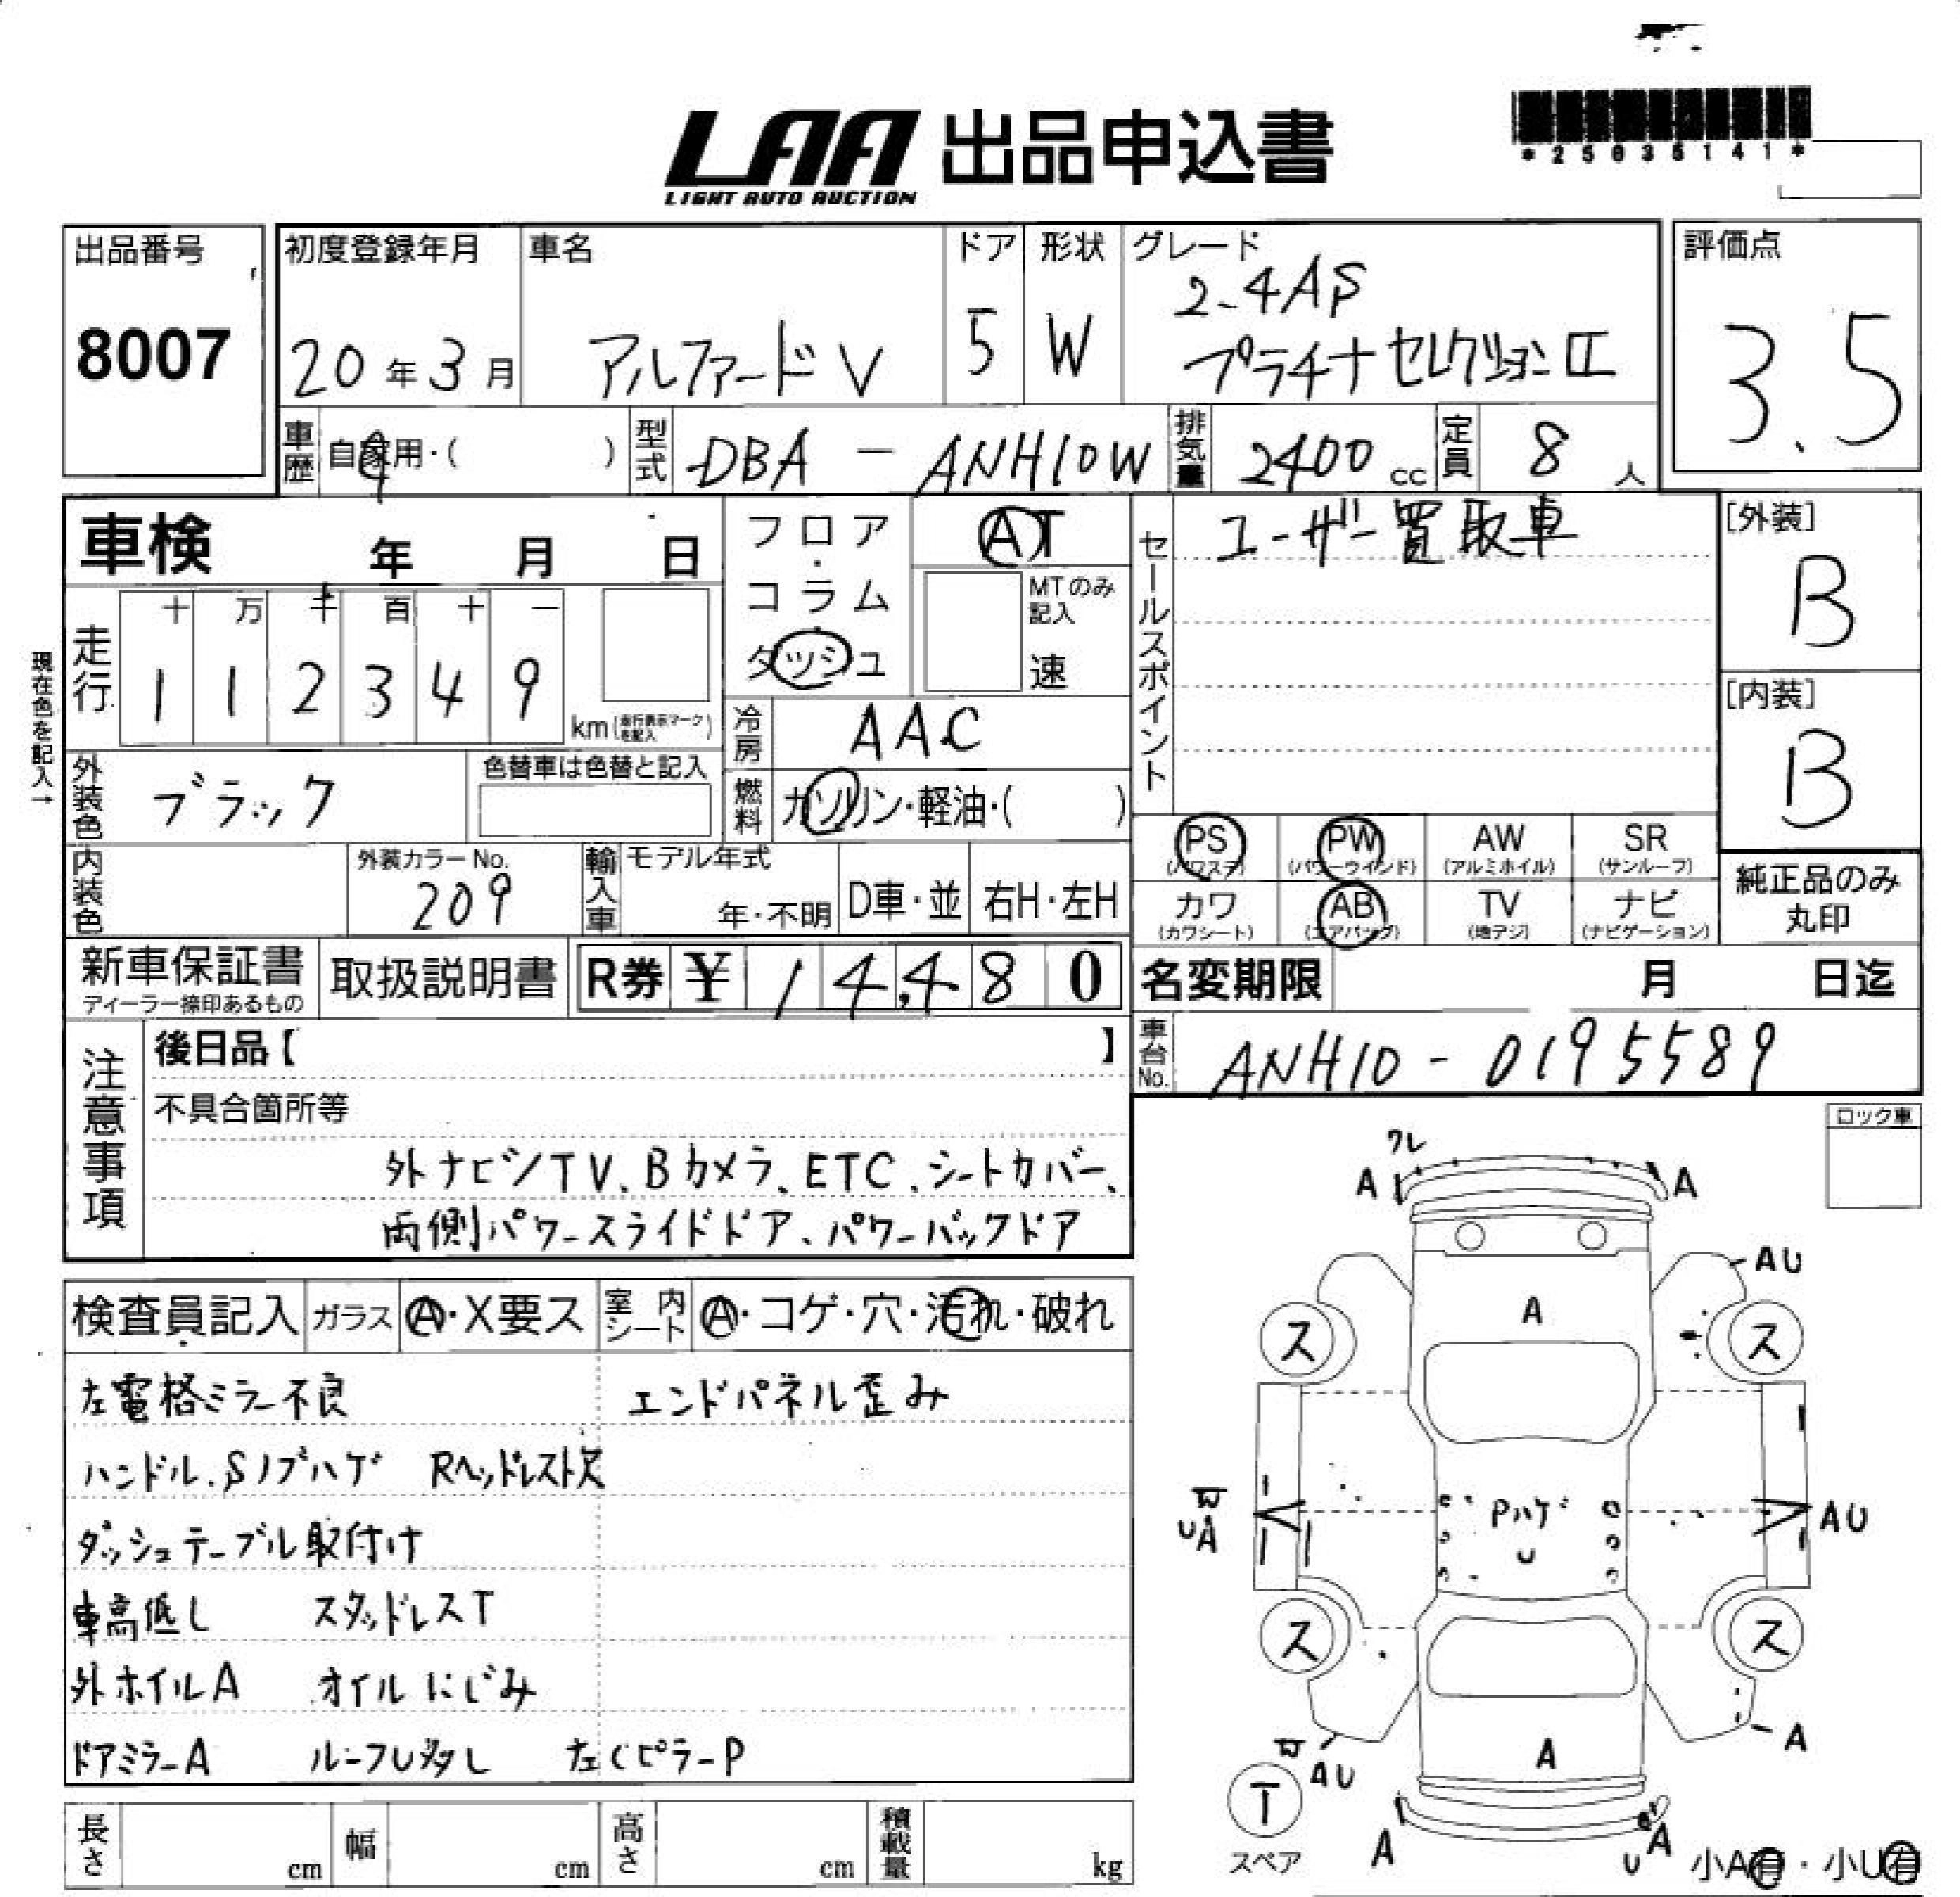 LAA 出品申込書
LIGHT AUTO AUCTION
*25035141*
出品番号
8007
初度登録年月
20年3月
車名
アルファードV
ドア
5
形状
W
グレード
2-4AS
プラチナセレクションII
評価点
3.5
車歴
自家用・( )
型式
DBA-ANH10W
排気量
2400cc
定員
8人
車検 年 月 日
フロア・コラム・ダッシュ
AT
MTのみ記入
速
セールスポイント
ユーザー買取車
[外装]
B
[内装]
B
現在色を記入→
走行
十 万 千 百 十 一
1 1 2 3 4 9
km(走行表示マークを記入)
冷房
AAC
外装色
ブラック
色替車は色替と記入
燃料
ガソリン・軽油・( )
内装色
外装カラーNo.
209
輸入車
モデル年式
年・不明
D車・並
右H・左H
PS
(パワステ)
PW
(パワーウインド)
AW
(アルミホイル)
SR
(サンルーフ)
カワ
(カワシート)
AB
(エアバッグ)
TV
(地デジ)
ナビ
(ナビゲーション)
純正品のみ
丸印
新車保証書
ディーラー捺印あるもの
取扱説明書
R券 ¥14,480
名変期限 月 日迄
車台No.
ANH10-0195589
注意事項
後日品【 】
不具合箇所等
外ナビ/TV、Bカメラ、ETC、シートカバー、
両側パワースライドドア、パワーバックドア
ロック車
検査員記入
ガラス
A・X要ス
室内シート
A・コゲ・穴・汚れ・破れ
左電格ミラー不良 エンドパネル歪み
ハンドル、Sノブハゲ Rヘッドレスト欠
ダッシュテーブル取付け
車高低し スタッドレスT
外ホイルA オイルにじみ
ドアミラーA ルーフU多し 左CピラーP
ワレ
A A
AU
A
ス ス
W
UA
Pハゲ
U
AU
ス ス
A
W
AU
A
T
スペア
A
A
U
小A有・小U有
長さ cm
幅 cm
高さ cm
積載量 kg